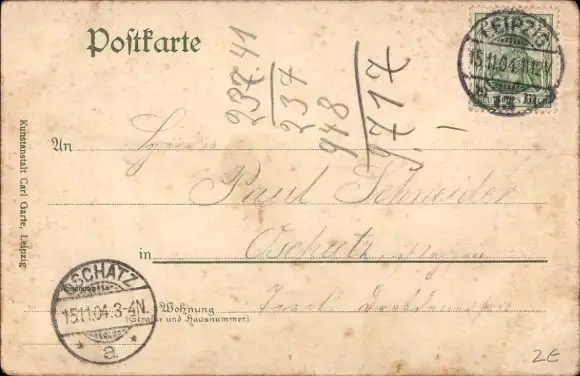 Postkarte
LEIPZIG
15.11.04.11-12V
237.41
234
948
9.717
An
Herrn
Paul Schneider
in
Oschatz
OSCHATZ
15.11.04.3-4N.
a
Wohnung
(Straße und Hausnummer)
Kunstanstalt Carl Garte, Leipzig
2E